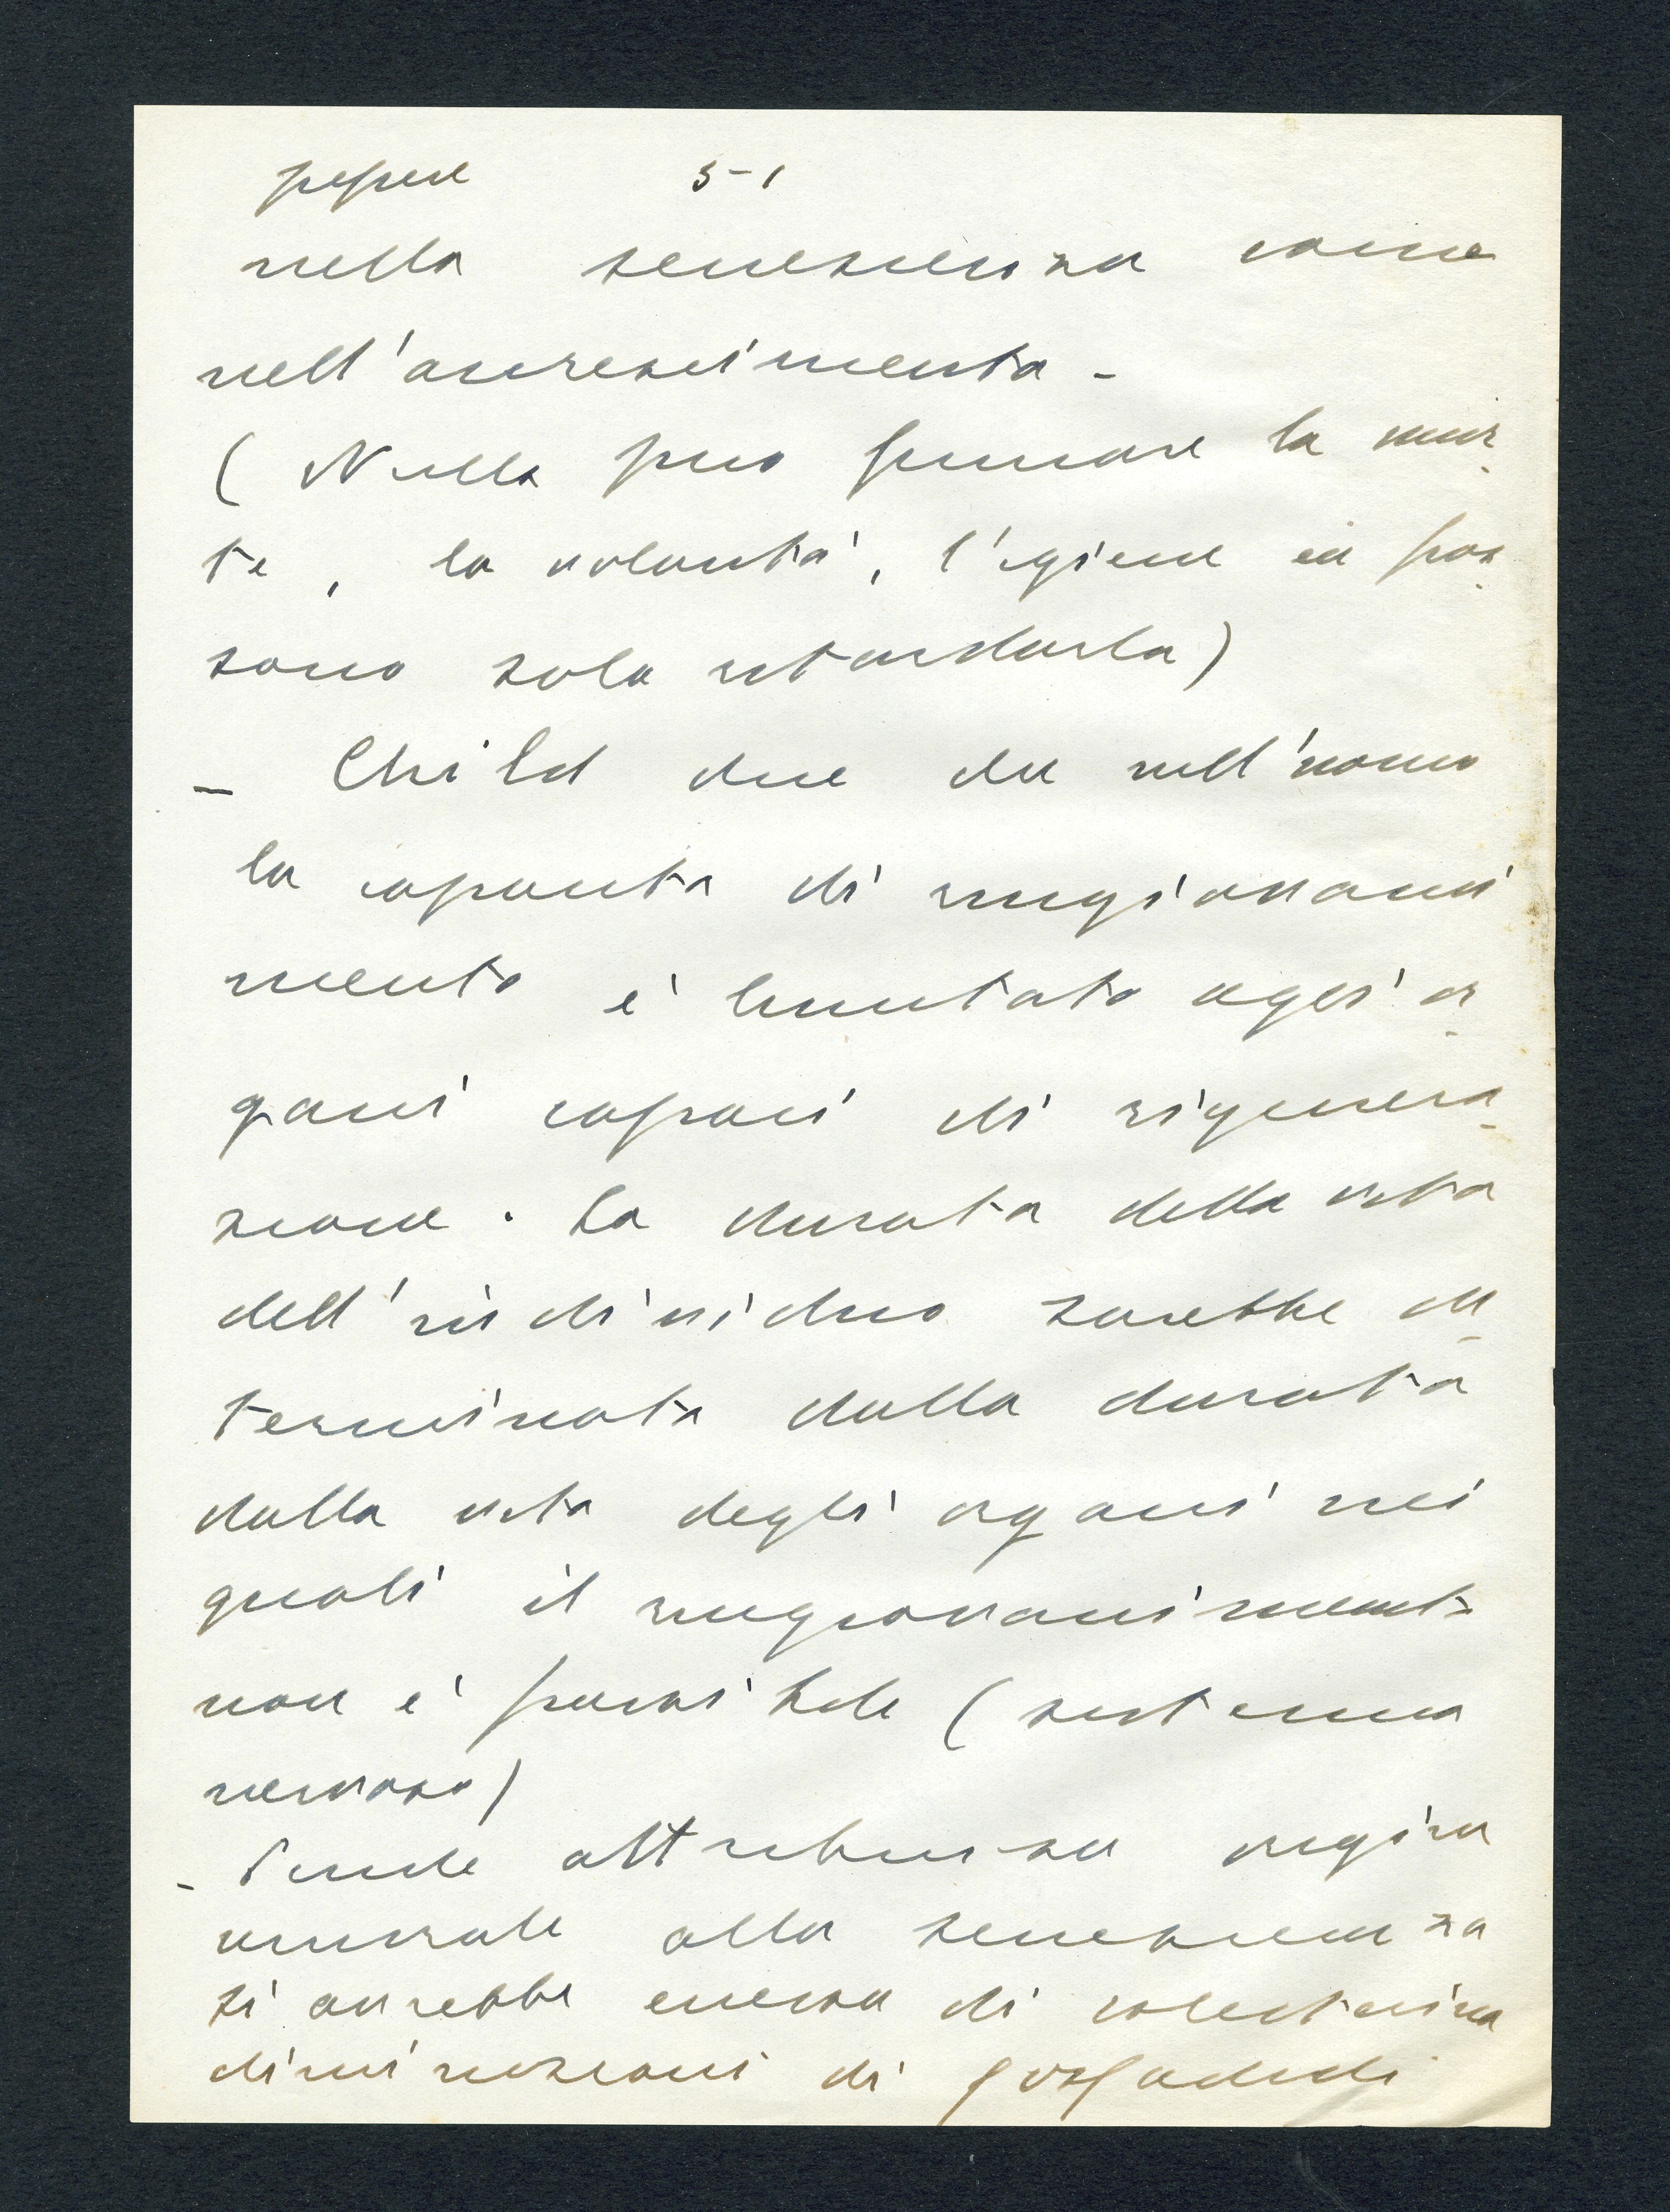 5-1
nella senescenza come
nell'accrescimento -
( Nulla puo fermare la mor
te , la volontà, l'igiene ecc pos
sono solo ritardarla)
- Child dice che nell'uomo
la capacità di ringiovani
mento è limitato agli or
gani capaci di rigenera
zione . La durata della vita
dell'individuo sarebbe de
terminata dalla durata
dalla vita degli organi nei
quali il ringiovanimento
non è possibile ( sistema
nervoso)
- Pende attribuisce origine
alla senescenza
si avrebbe di colesterina
diminuzioni di fosfatidi